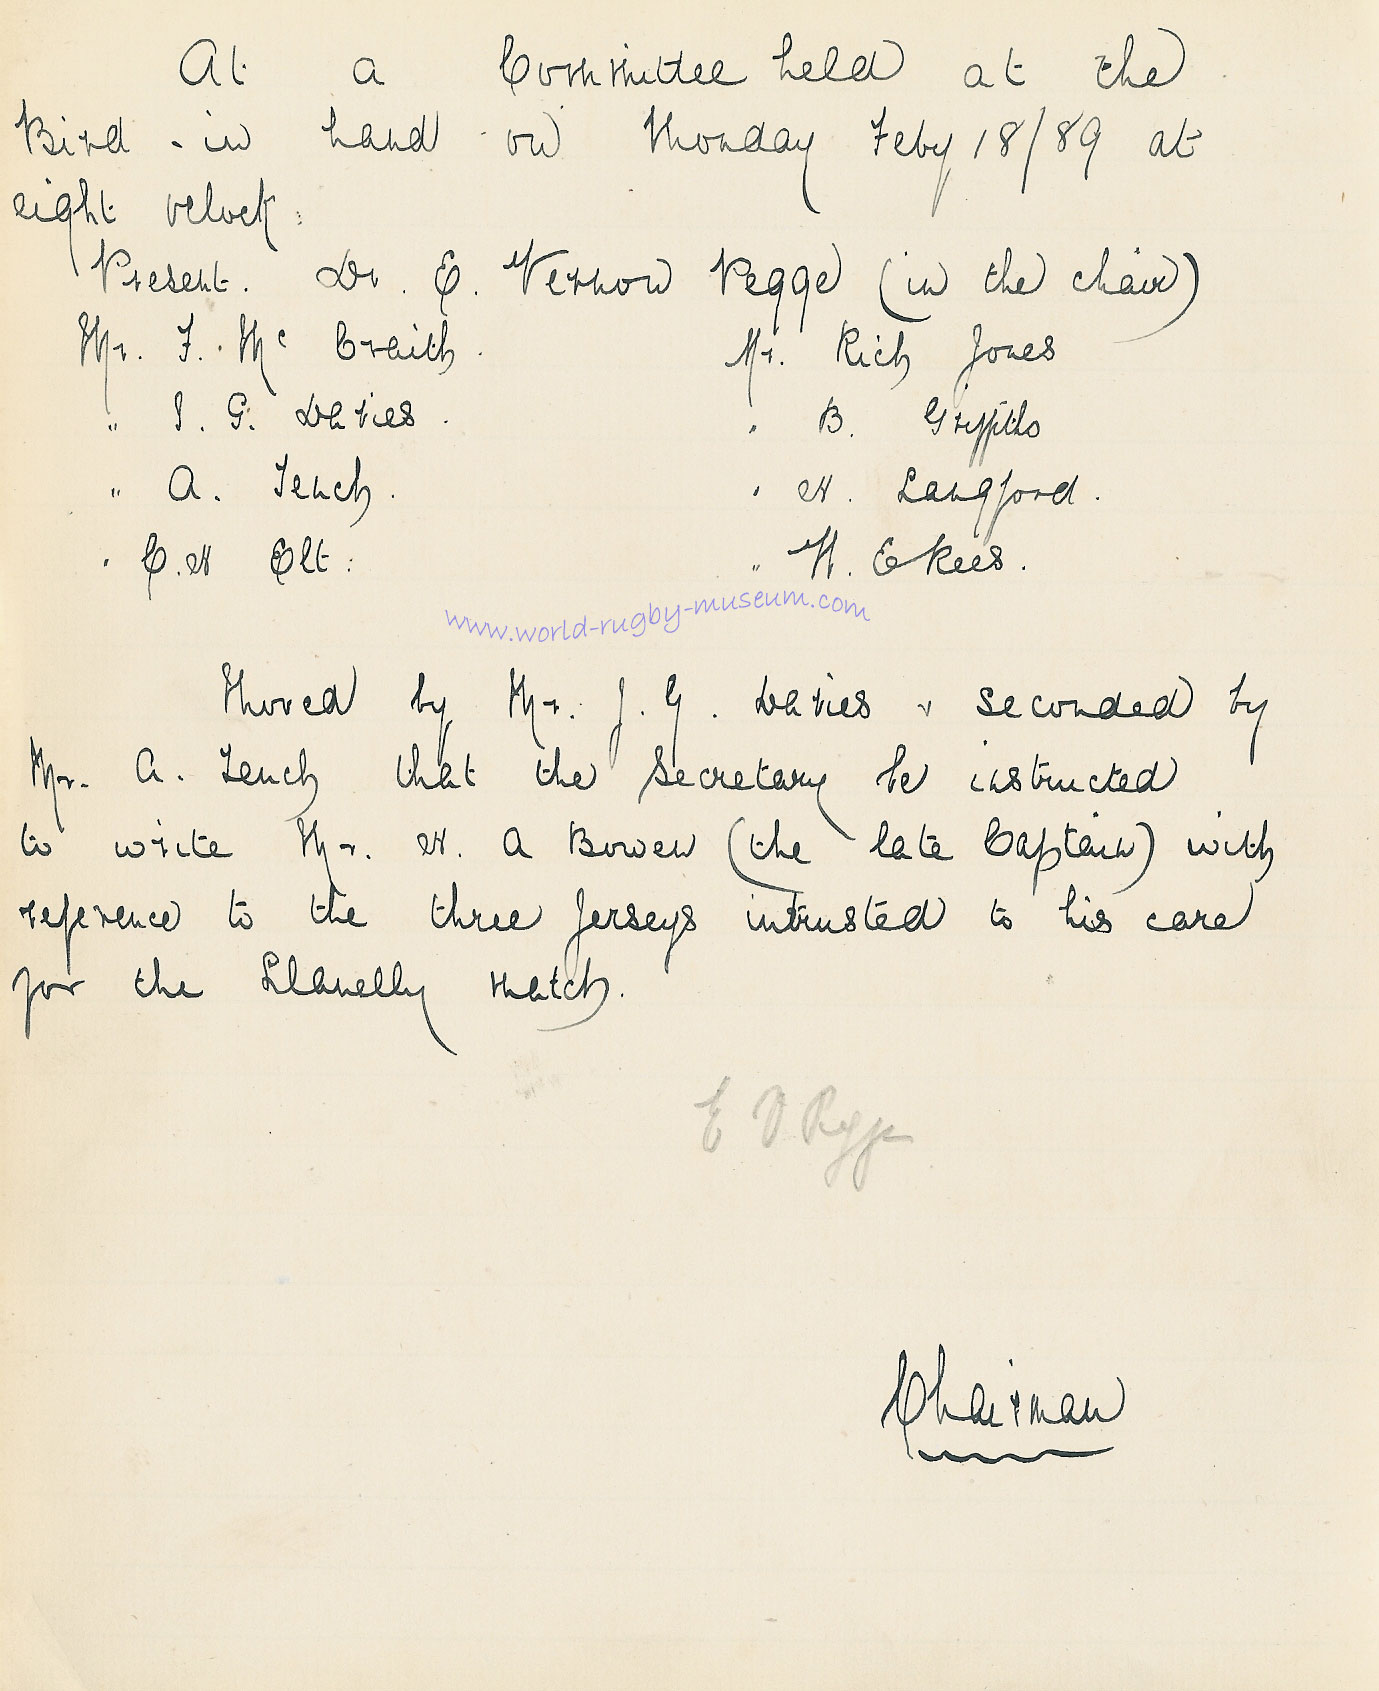 At a Committee held at the
Bird-in hand on Monday Feby 18/89 at
eight oclock.
Present. Dr. E. Vernon Pegge (in the chair)
Mr. F. Mc Craith. Mr. Rich Jones
" J. G. Davies. " B. Griffiths
" A. Tench. " W. Langford.
" C. W Olt. " W. E Rees.
www.world-rugby-museum.com
Moved by Mr. J. G. Davies & seconded by
Mr. A. Tench that the Secretary be instructed
to write Mr. W. A Bowen (the late Captain) with
reference to the three Jerseys intrusted to his care
for the Llanelly match.
E V Pegge
Chairman